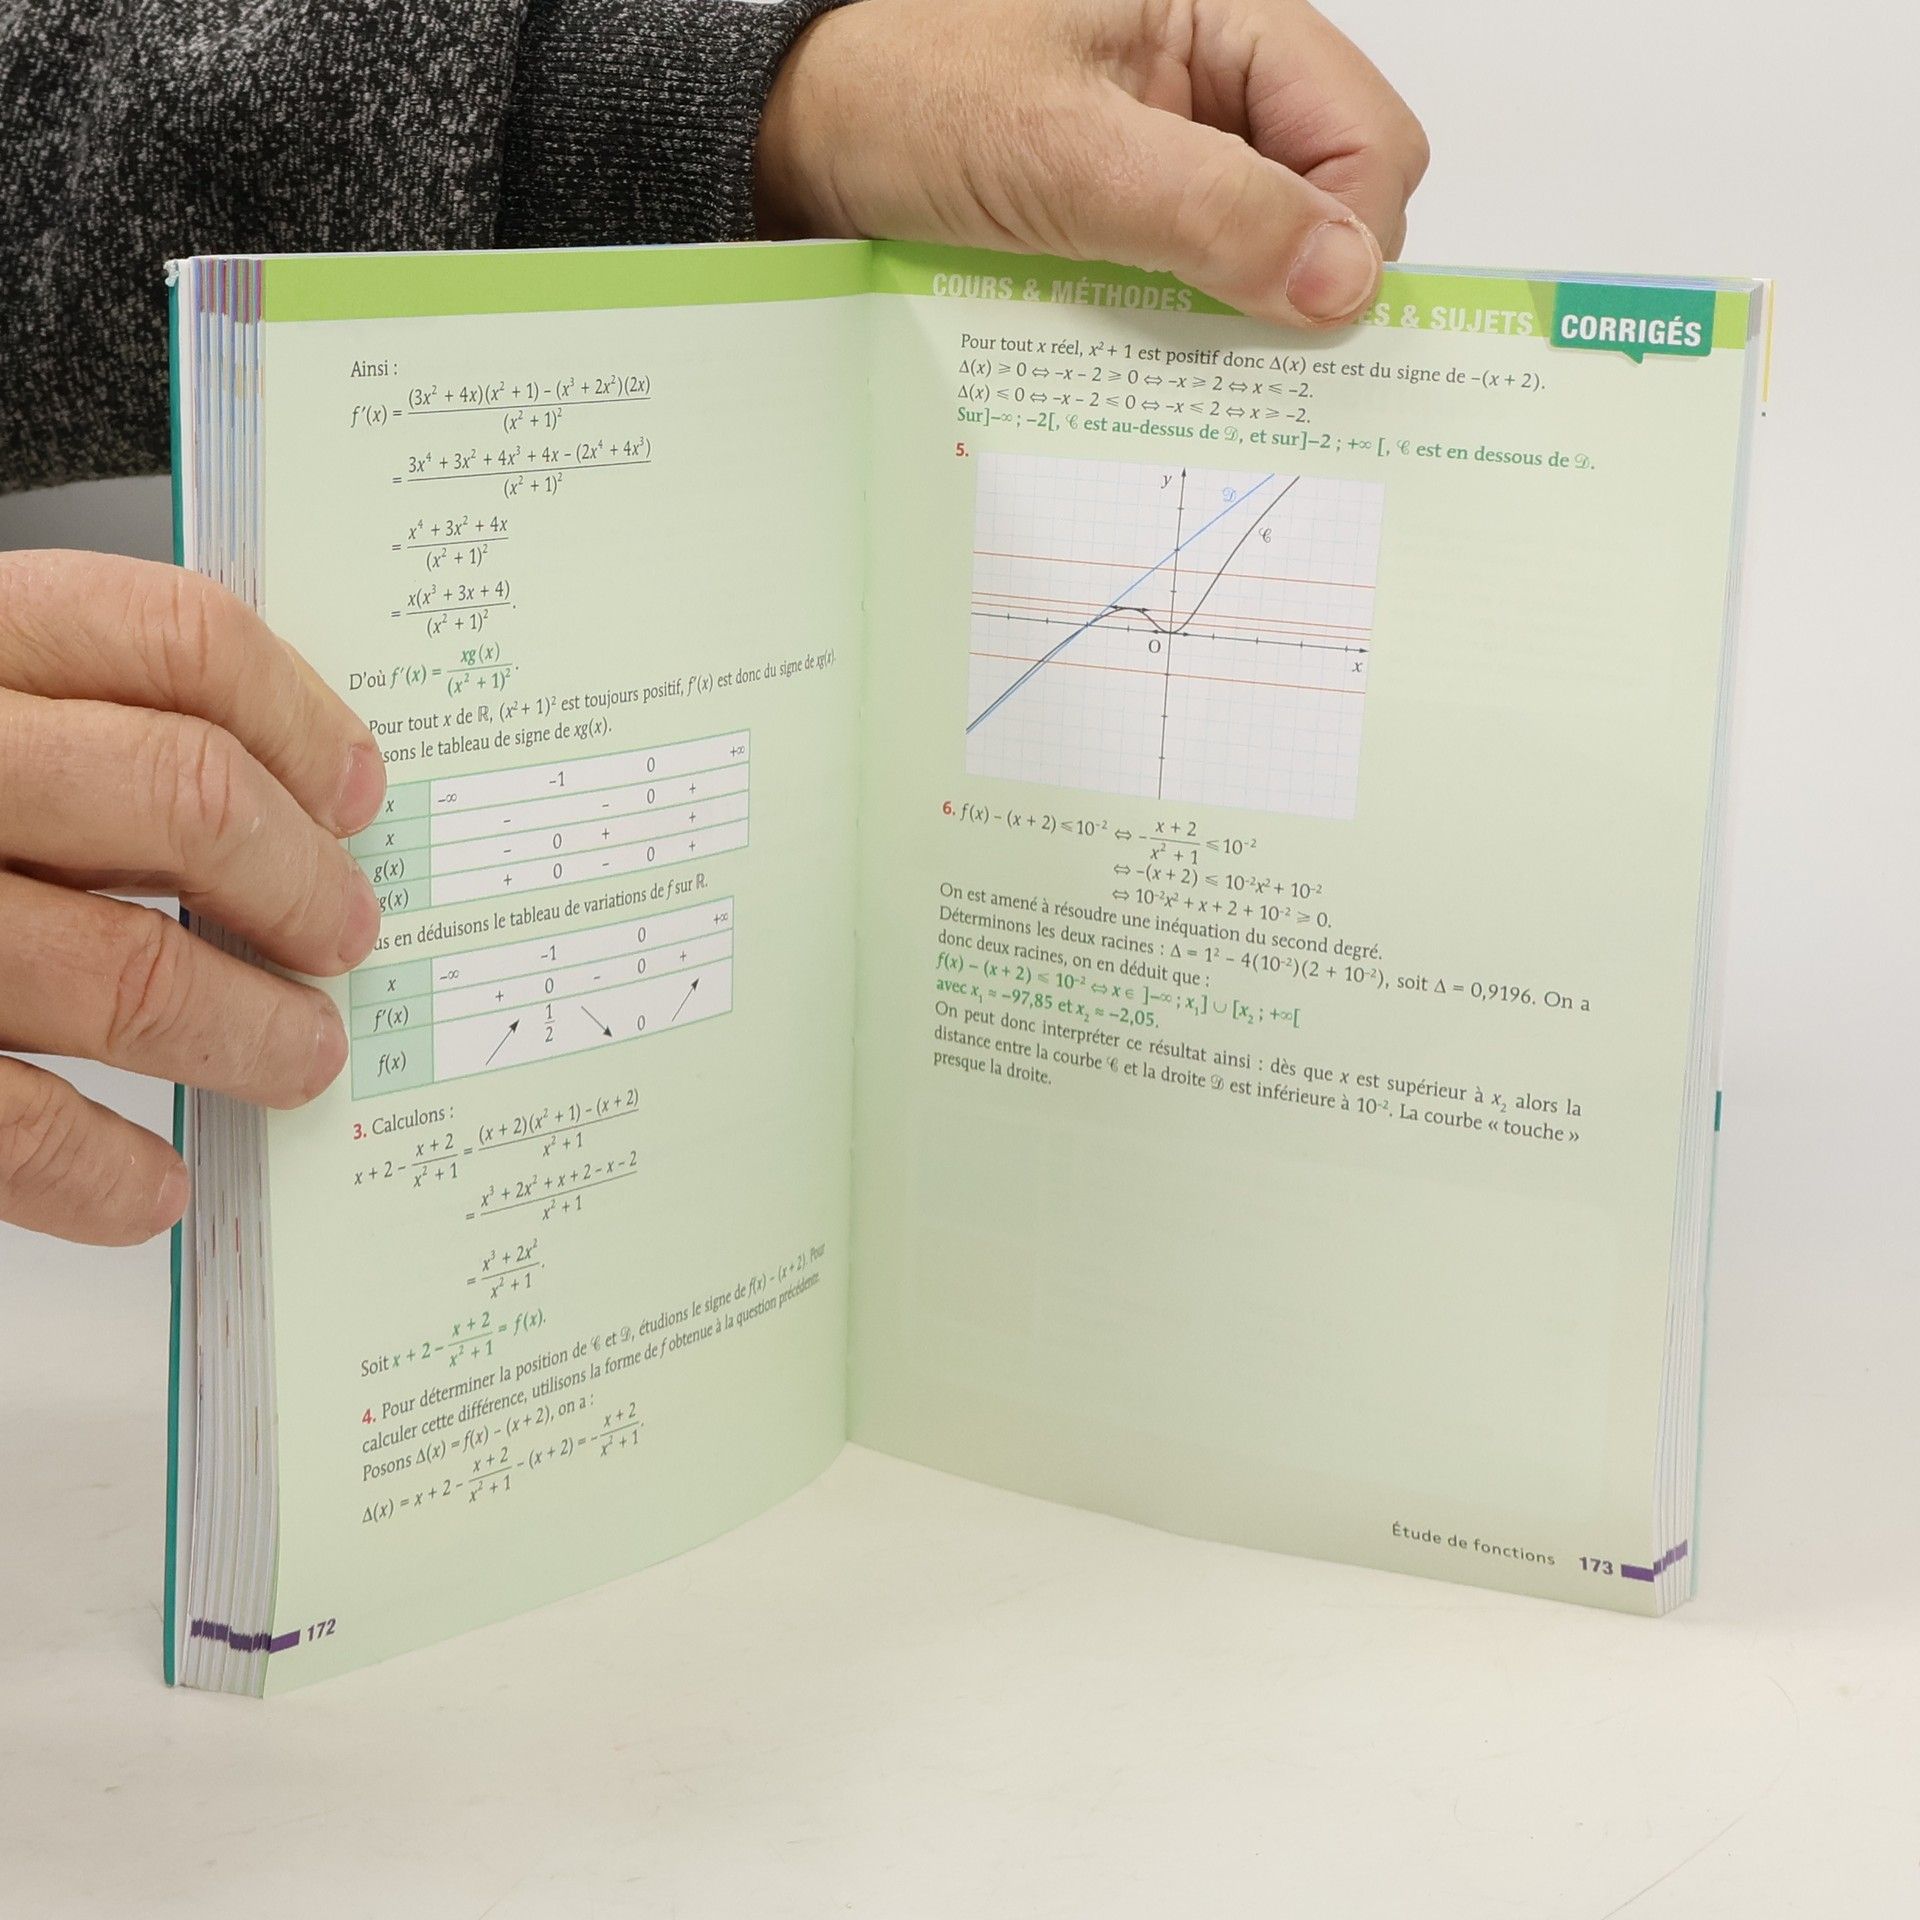 Ainsi :
f'(x) = (3x² + 4x)(x² + 1) – (x³ + 2x²)(2x) / (x² + 1)²
= 3x⁴ + 3x² + 4x³ + 4x – (2x⁴ + 4x³) / (x² + 1)²
= x⁴ + 3x² + 4x / (x² + 1)²
= x(x³ + 3x + 4) / (x² + 1)².
D'où f'(x) = xg(x) / (x² + 1)².
Pour tout x de ℝ, (x² + 1)² est toujours positif, f'(x) est donc du signe de xg(x).
le tableau de signe de xg(x).
x –∞ –1 0 +∞
x – – 0 +
g(x) – 0 + +
g(x) + 0 – 0 +
en déduisons le tableau de variations de f sur ℝ.
x –∞ –1 0 +∞
f'(x) + 0 – 0 +
f(x) 1/2 0
3. Calculons :
x + 2 – x + 2 / x² + 1 = (x + 2)(x² + 1) – (x + 2) / x² + 1
= x³ + 2x² + x + 2 – x – 2 / x² + 1
= x³ + 2x² / x² + 1.
Soit x + 2 – x + 2 / x² + 1 = f(x).
4. Pour déterminer la position de 𝒞 et 𝒟, étudions le signe de f(x) – (x + 2). Pour
calculer cette différence, utilisons la forme de f obtenue à la question précédente.
Posons Δ(x) = f(x) – (x + 2), on a :
Δ(x) = x + 2 – x + 2 / x² + 1 – (x + 2) = – x + 2 / x² + 1.
172
COURS & MÉTHODES
& SUJETS
CORRIGÉS
Pour tout x réel, x² + 1 est positif donc Δ(x) est est du signe de –(x + 2).
Δ(x) ⩾ 0 ⇔ –x – 2 ⩾ 0 ⇔ –x ⩾ 2 ⇔ x ⩽ –2.
Δ(x) ⩽ 0 ⇔ –x – 2 ⩽ 0 ⇔ –x ⩽ 2 ⇔ x ⩾ –2.
Sur ]–∞ ; –2[, 𝒞 est au-dessus de 𝒟, et sur ]–2 ; +∞ [, 𝒞 est en dessous de 𝒟.
5.
y
𝒟
𝒞
O
x
6. f(x) – (x + 2) ⩽ 10⁻² ⇔ – x + 2 / x² + 1 ⩽ 10⁻²
⇔ –(x + 2) ⩽ 10⁻²x² + 10⁻²
⇔ 10⁻²x² + x + 2 + 10⁻² ⩾ 0.
On est amené à résoudre une inéquation du second degré.
Déterminons les deux racines : Δ = 1² – 4(10⁻²)(2 + 10⁻²), soit Δ = 0,9196. On a
donc deux racines, on en déduit que :
f(x) – (x + 2) ⩽ 10⁻² ⇔ x ∈ ]–∞ ; x₁] ∪ [x₂ ; +∞[
avec x₁ ≈ –97,85 et x₂ ≈ –2,05.
On peut donc interpréter ce résultat ainsi : dès que x est supérieur à x₂ alors la
distance entre la courbe 𝒞 et la droite 𝒟 est inférieure à 10⁻². La courbe « touche »
presque la droite.
Étude de fonctions 173